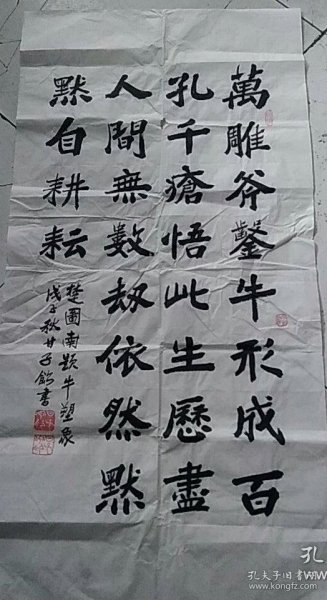 萬雕斧鑿牛形成百
孔千瘡悟此生歷盡
人間無數劫依然默
默自耕耘
楚圖南題牛塑象
戊子秋甘子钊書
孔夫子旧书网
www.kongfz.com